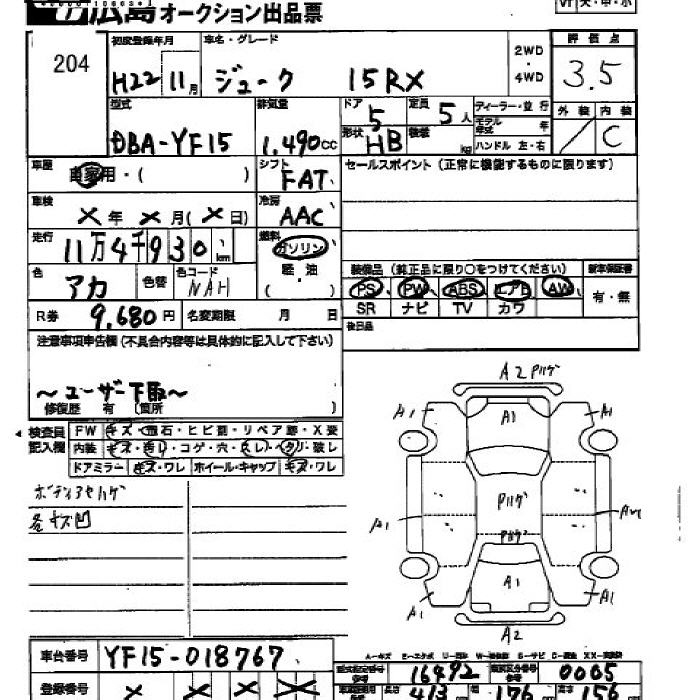 広島オークション出品票
VT 大・中・小
204
初度登録年月 車名・グレード 2WD・4WD 評価点
H22 11月 ジューク 15RX 3.5
型式 排気量 ドア 5 定員 5人 ディーラー・並行 外装 内装
DBA-YF15 1.490cc 形状 HB モデル年式 年 ハンドル 左・右 C
車歴 自家用・( ) シフト FAT セールスポイント(正常に機能するものに限ります)
車検 X年 X月(X日) 冷房 AAC
走行 11万4千930km 燃料 ガソリン 軽・油 ( )
色 アカ 色替 色コード NAH
装備品(純正品に限り○をつけてください) 新車保証書
PS PW ABS エアB AW 有・無
SR ナビ TV カワ
R券 9,680円 名変期限 月 日 後日品
注意事項申告欄(不具合内容等は具体的に記入して下さい)
〜ユーザー下取〜
修復歴 有 (箇所 )
検査員記入欄 FW キズ・飛石・ヒビ割・リペア跡・X要
内装 キズ・汚れ・コゲ・穴・スレ・ヘタリ・破レ
ドアミラー キズ・ワレ ホイール・キャップ キズ・ワレ
ボディアセハゲ
各キズ凹
A2 Pハゲ
A1 A1 A1
Pハゲ
A1
Pハゲ
A1 A1 A1
A2
A-キズ E-エクボ
車台番号 YF15-018767
型式指定番号 16492 類別区分番号 0005
登録番号 X X X X
長さ 413 幅 176 高さ 156